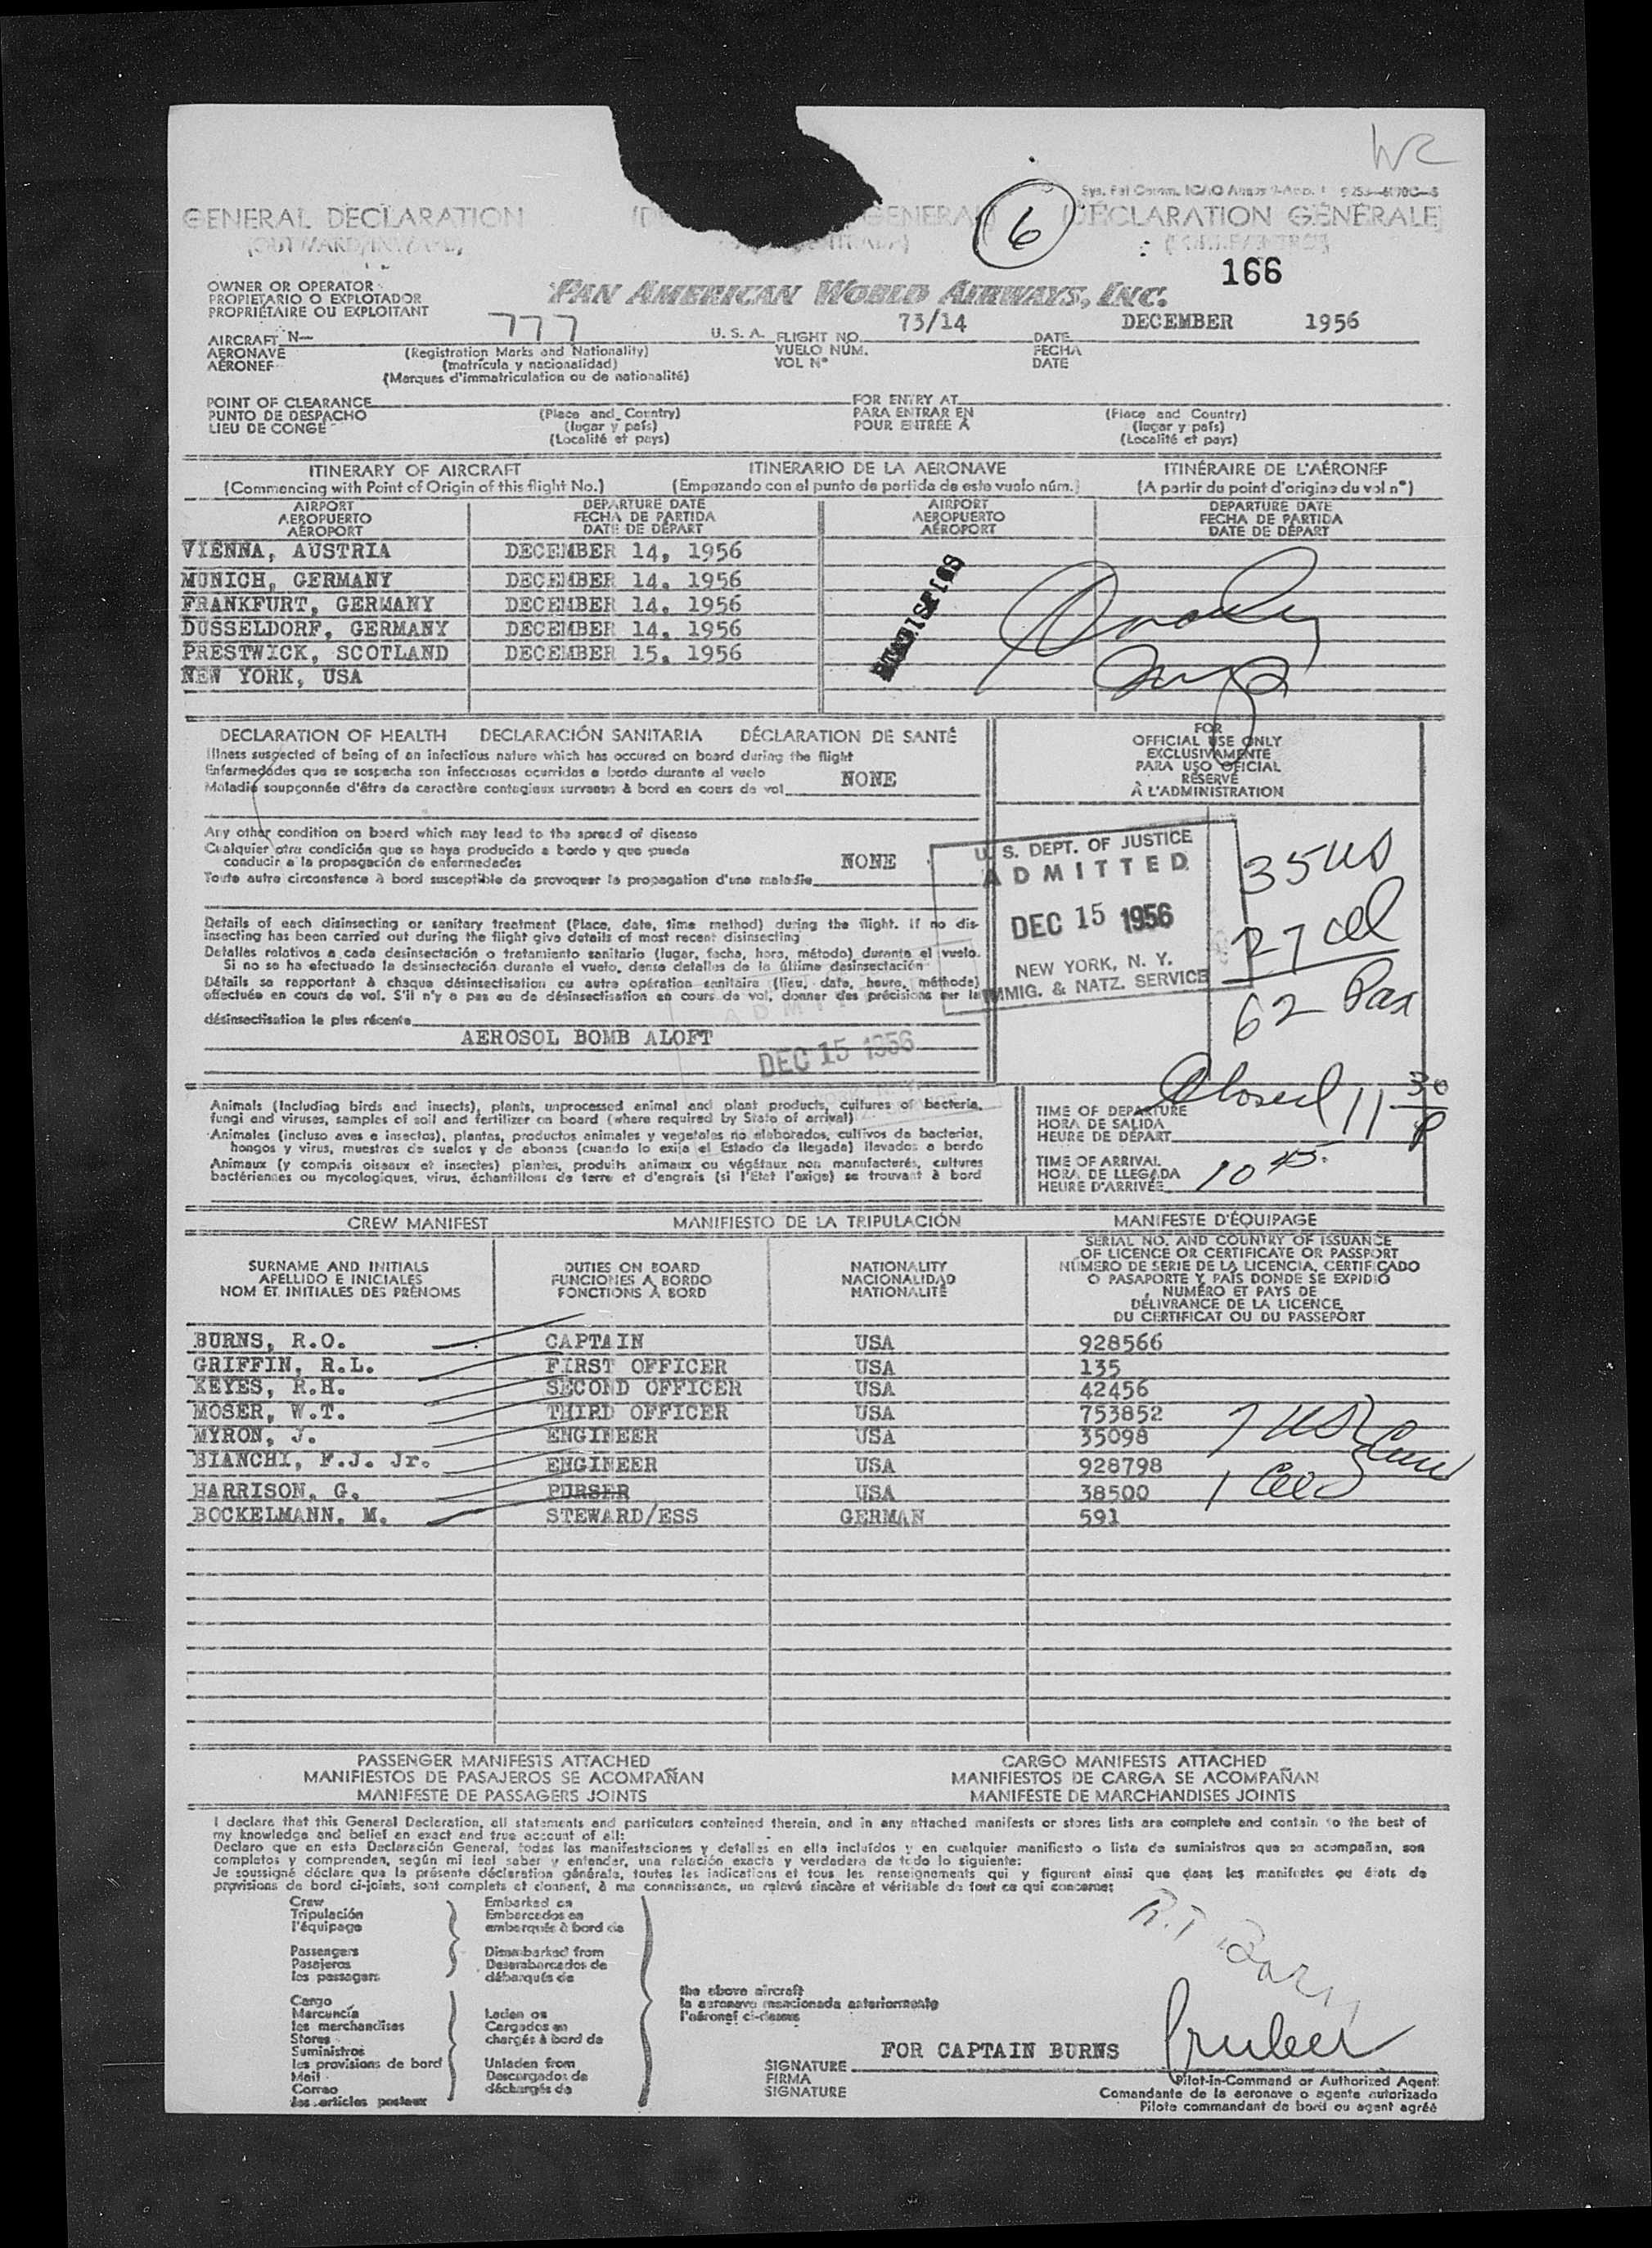 Sys. Fat Comm. ICAO
GENERAL DECLARATION
GENERAL
6
(DÉCLARATION GÉNÉRALE)
166
OWNER OR OPERATOR
PROPIETARIO O EXPLOTADOR
PROPRIÉTAIRE OU EXPLOITANT
PAN AMERICAN WORLD AIRWAYS, INC.
AIRCRAFT N— 777 U. S. A. FLIGHT NO. 73/14 DATE DECEMBER 1956
AERONAVE (Registration Marks and Nationality) VUELO NÚM. FECHA
AÉRONEF (matrícula y nacionalidad) VOL N° DATE
(Marques d'immatriculation ou de nationalité)
POINT OF CLEARANCE FOR ENTRY AT
PUNTO DE DESPACHO (Place and Country) PARA ENTRAR EN (Place and Country)
LIEU DE CONGÉ (lugar y país) POUR ENTRÉE À (lugar y país)
(Localité et pays) (Localité et pays)
ITINERARY OF AIRCRAFT ITINERARIO DE LA AERONAVE ITINÉRAIRE DE L'AÉRONEF
(Commencing with Point of Origin of this flight No.) (Empezando con el punto de partida de este vuelo núm.) (A partir du point d'origine du vol n°)
AIRPORT DEPARTURE DATE AIRPORT DEPARTURE DATE
AEROPUERTO FECHA DE PARTIDA AEROPUERTO FECHA DE PARTIDA
AÉROPORT DATE DE DÉPART AÉROPORT DATE DE DÉPART
VIENNA, AUSTRIA DECEMBER 14, 1956
MUNICH, GERMANY DECEMBER 14, 1956
FRANKFURT, GERMANY DECEMBER 14, 1956
DUSSELDORF, GERMANY DECEMBER 14, 1956
PRESTWICK, SCOTLAND DECEMBER 15, 1956
NEW YORK, USA
DECLARATION OF HEALTH DECLARACIÓN SANITARIA DÉCLARATION DE SANTÉ
Illness suspected of being of an infectious nature which has occured on board during the flight
Enfermedades que se sospecha son infecciosas ocurridas a bordo durante el vuelo
Maladie soupçonnée d'être de caractère contagieux survenue à bord en cours de vol NONE
FOR
OFFICIAL USE ONLY
EXCLUSIVAMENTE
PARA USO OFICIAL
RÉSERVÉ
À L'ADMINISTRATION
Any other condition on board which may lead to the spread of disease
Cualquier otra condición que se haya producido a bordo y que pueda
conducir a la propagación de enfermedades
Toute autre circonstance à bord susceptible de provoquer la propagation d'une maladie NONE
U. S. DEPT. OF JUSTICE
ADMITTED
DEC 15 1956
NEW YORK, N. Y.
IMMIG. & NATZ. SERVICE
35 US
27 cel
62 Pax
Details of each disinsecting or sanitary treatment (Place, date, time method) during the flight. If no dis-
insecting has been carried out during the flight give details of most recent disinsecting
Detalles relativos a cada desinsectación o tratamiento sanitario (lugar, fecha, hora, método) durante el vuelo.
Si no se ha efectuado la desinsectación durante el vuelo, dense detalles de la última desinsectación
Détails se rapportant à chaque désinsectisation ou autre opération sanitaire (lieu, date, heure, méthode)
effectuée en cours de vol. S'il n'y a pas eu de désinsectisation en cours de vol, donner des précisions sur la
désinsectisation la plus récente
AEROSOL BOMB ALOFT
ADMITTED
DEC 15 1956
Closed 11 30 P
Animals (Including birds and insects), plants, unprocessed animal and plant products, cultures of bacteria,
fungi and viruses, samples of soil and fertilizer on board (where required by State of arrival)
Animales (incluso aves e insectos), plantas, productos animales y vegetales no elaborados, cultivos de bacterias,
hongos y virus, muestras de suelos y de abonos (cuando lo exija el Estado de llegada) llevados a bordo
Animaux (y compris oiseaux et insectes) plantes, produits animaux ou végétaux non manufacturés, cultures
bactériennes ou mycologiques, virus, échantillons de terre et d'engrais (si l'État l'exige) se trouvant à bord
TIME OF DEPARTURE
HORA DE SALIDA
HEURE DE DÉPART
TIME OF ARRIVAL
HORA DE LLEGADA
HEURE D'ARRIVÉE 10 45
CREW MANIFEST MANIFIESTO DE LA TRIPULACIÓN MANIFESTE D'ÉQUIPAGE
SURNAME AND INITIALS
APELLIDO E INICIALES
NOM ET INITIALES DES PRÉNOMS
DUTIES ON BOARD
FUNCIONES A BORDO
FONCTIONS À BORD
NATIONALITY
NACIONALIDAD
NATIONALITÉ
SERIAL NO. AND COUNTRY OF ISSUANCE
OF LICENCE OR CERTIFICATE OR PASSPORT
NÚMERO DE SERIE DE LA LICENCIA, CERTIFICADO
O PASAPORTE Y PAÍS DONDE SE EXPIDIÓ
NUMÉRO ET PAYS DE
DÉLIVRANCE DE LA LICENCE,
DU CERTIFICAT OU DU PASSEPORT
BURNS, R.O. CAPTAIN USA 928566
GRIFFIN, R.L. FIRST OFFICER USA 135
KEYES, R.H. SECOND OFFICER USA 42456
MOSER, W.T. THIRD OFFICER USA 753852
MYRON, J. ENGINEER USA 35098
BIANCHI, F.J. Jr. ENGINEER USA 928798
HARRISON, G. PURSER USA 38500
BOCKELMANN, M. STEWARD/ESS GERMAN 591
7 US
PASSENGER MANIFESTS ATTACHED CARGO MANIFESTS ATTACHED
MANIFIESTOS DE PASAJEROS SE ACOMPAÑAN MANIFIESTOS DE CARGA SE ACOMPAÑAN
MANIFESTE DE PASSAGERS JOINTS MANIFESTE DE MARCHANDISES JOINTS
I declare that this General Declaration, all statements and particulars contained therein, and in any attached manifests or stores lists are complete and contain to the best of
my knowledge and belief an exact and true account of all:
Declaro que en esta Declaración General, todas las manifestaciones y detalles en ella incluídos y en cualquier manifiesto o lista de suministros que se acompañan, son
completos y comprenden, según mi leal saber y entender, una relación exacta y verdadera de todo lo siguiente:
Je soussigné déclare que la présente déclaration générale, toutes les indications et tous les renseignements qui y figurent ainsi que dans les manifestes ou états de
provisions de bord ci-joints, sont complets et donnent, à ma connaissance, un relevé sincère et véritable de tout ce qui concerne:
Crew Embarked on
Tripulación Embarcados en
l'équipage embarqués à bord de
Passengers Disembarked from
Pasajeros Desembarcados de
les passagers débarqués de
the above aircraft
la aeronave mencionada anteriormente
l'aéronef ci-dessus
Cargo
Mercancía Laden on
les merchandises Cargados en
Stores chargés à bord de
Suministros
les provisions de bord Unladen from
Mail Descargados de
Correo déchargés de
les articles postaux
SIGNATURE FOR CAPTAIN BURNS
FIRMA
SIGNATURE
Pilot-in-Command or Authorized Agent
Comandante de la aeronave o agente autorizado
Pilote commandant de bord ou agent agréé